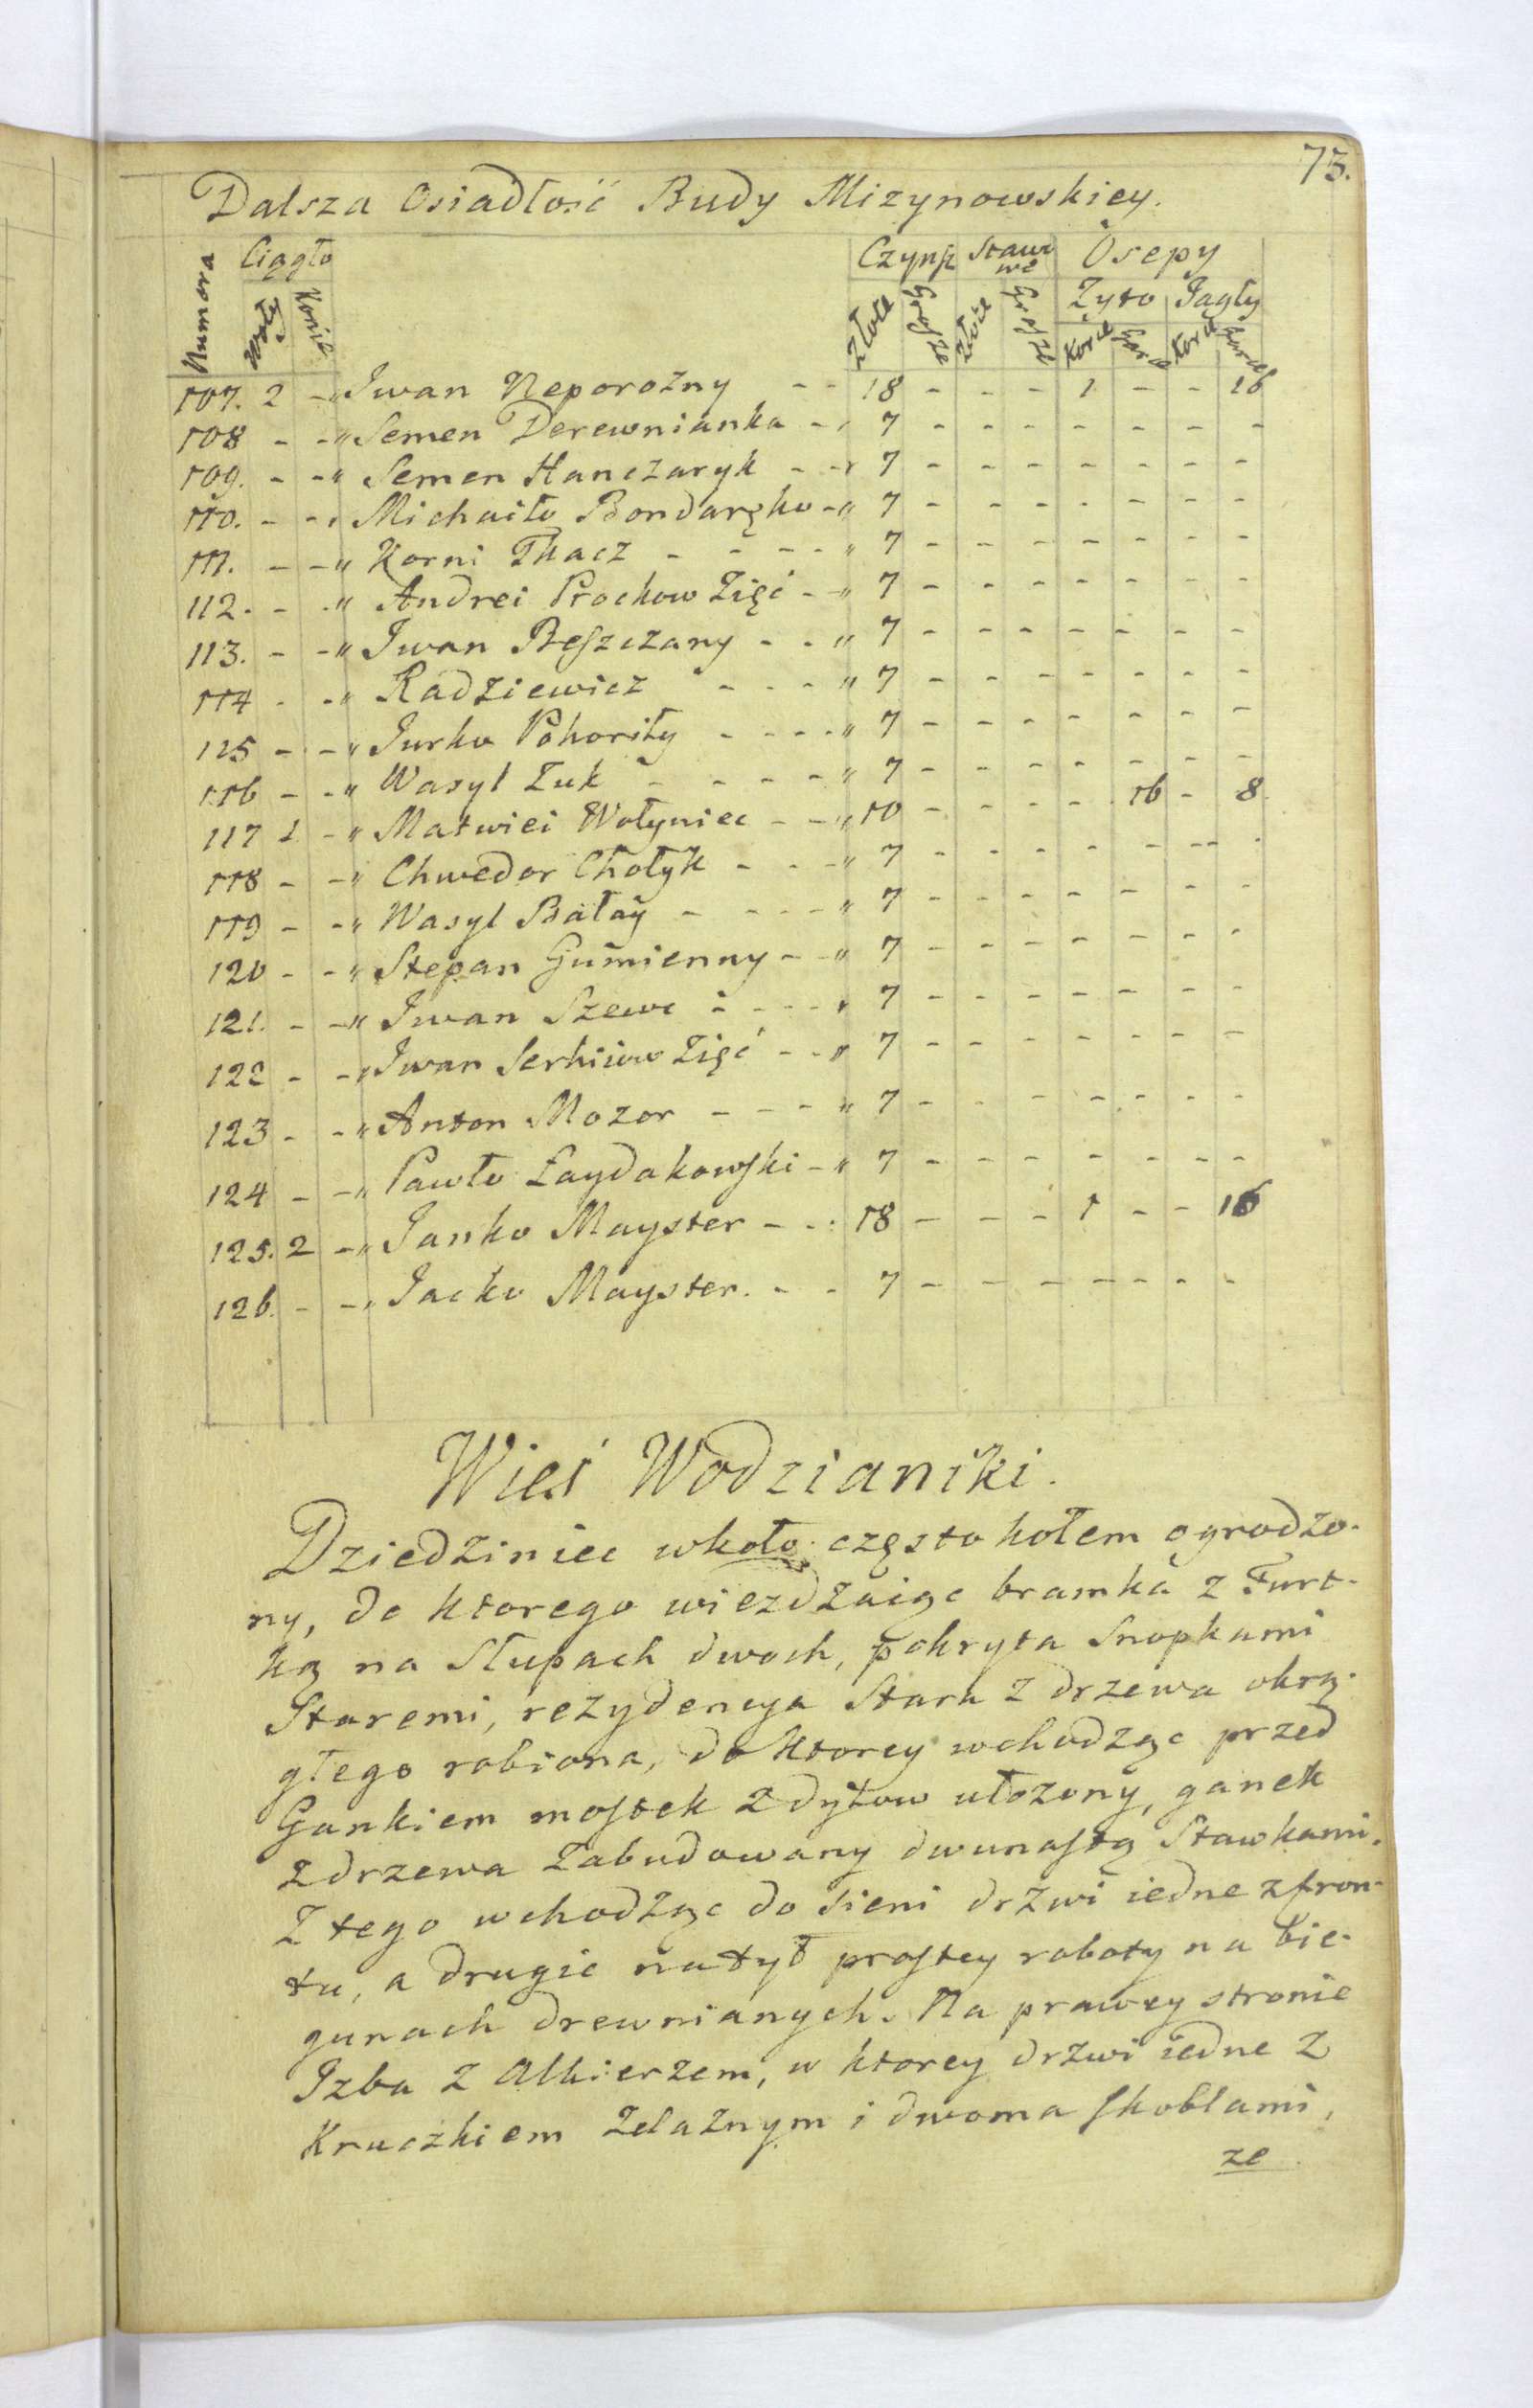 73.
Dalsza Osiadłość Budy Mizynowskiey.
Numera Ciągło Czynsz Stawowe Osepy
Konie Żyto Jagły
Złote Grosze Złote Grosze Korce Garce Korce Garce
107. 2 - " Iwan Neporozny - - 18 - - - 1 - - 16
108 - - " Semen Derewnianka - , 7 - - - - - - -
109. - - " Semen Hanczaryk - - " 7 - - - - - - -
110. - - " Michaiło Bondaręko - " 7 - - - - - - -
111. - - " Korni Tkacz - - - - " 7 - - - - - - -
112. - - " Andrei Prochow Zięć - " 7 - - - - - - -
113. - - " Iwan Beszczany - - " 7 - - - - - - -
114 - - " Radziewicz - - - " 7 - - - - - - -
115 - - " Jurko Pohoriły - - - - " 7 - - - - - - -
116 - - " Wasyl Żuk - - - - - " 7 - - - - - - -
117 1 - " Matwiei Wołyniec - - " 10 - - - - 16 - 8
118 - - " Chwedor Chołyk - - - " 7 - - - - - - -
119 - - " Wasyl Bałay - - - - " 7 - - - - - - -
120 - - " Stepan Gumienny - - " 7 - - - - - - -
121. - - " Iwan Szewc - - - - " 7 - - - - - - -
122 - - " Iwan Serhiiow Zięć - - " 7 - - - - - - -
123 - - " Anton Mozor - - - " 7 - - - - - - -
124 - - " Pawło Łaydakowski - " 7 - - - - - - -
125. 2 - " Janko Mayster - - : 18 - - - 1 - - 16
126. - - " Jacko Mayster. - - 7 - - - - - - -
Wieś Wodzianiki.
Dziedziniec wkoło częstokołem ogrodzo-
ny, do ktorego wiezdzaiąc bramka z Furt-
ką na Słupach dwoch, pokryta Snopkami
Staremi, rezydencya Stara z drzewa okrą-
głego robiona, do ktorey wchodząc przed
Gankiem mostek z dylow ułozony, ganek
z drzewa zabudowany dwunastą Stawkami.
Z tego wchodząc do Sieni drzwi iedne z fron-
tu, a drugie natył prostey roboty na bie-
gunach drewnianych. Na prawey stronie
Izba z Alkierzem, w ktorey drzwi iedne z
Kruczkiem Zelaznym i dwoma skoblami,
ze